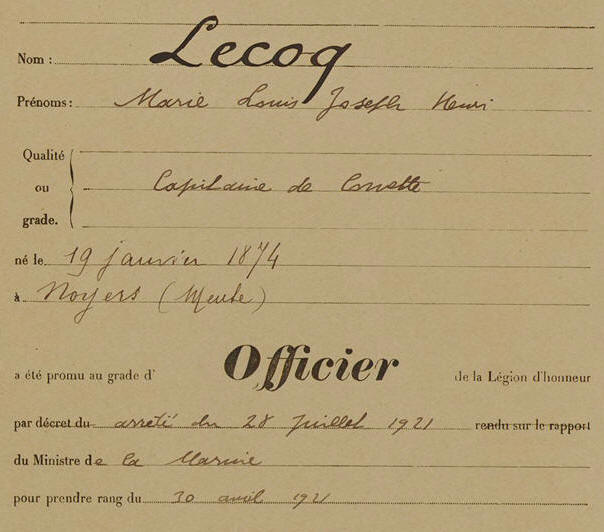 Nom : Lecoq
Prénoms : Marie Louis Joseph Henri
Qualité
ou Capitaine de Corvette
grade.
né le 19 janvier 1874
à Noyers (Meuse)
a été promu au grade d' Officier de la Légion d'honneur
par décret du arrêté du 28 juillet 1921 rendu sur le rapport
du Ministre de la Marine
pour prendre rang du 30 avril 1921